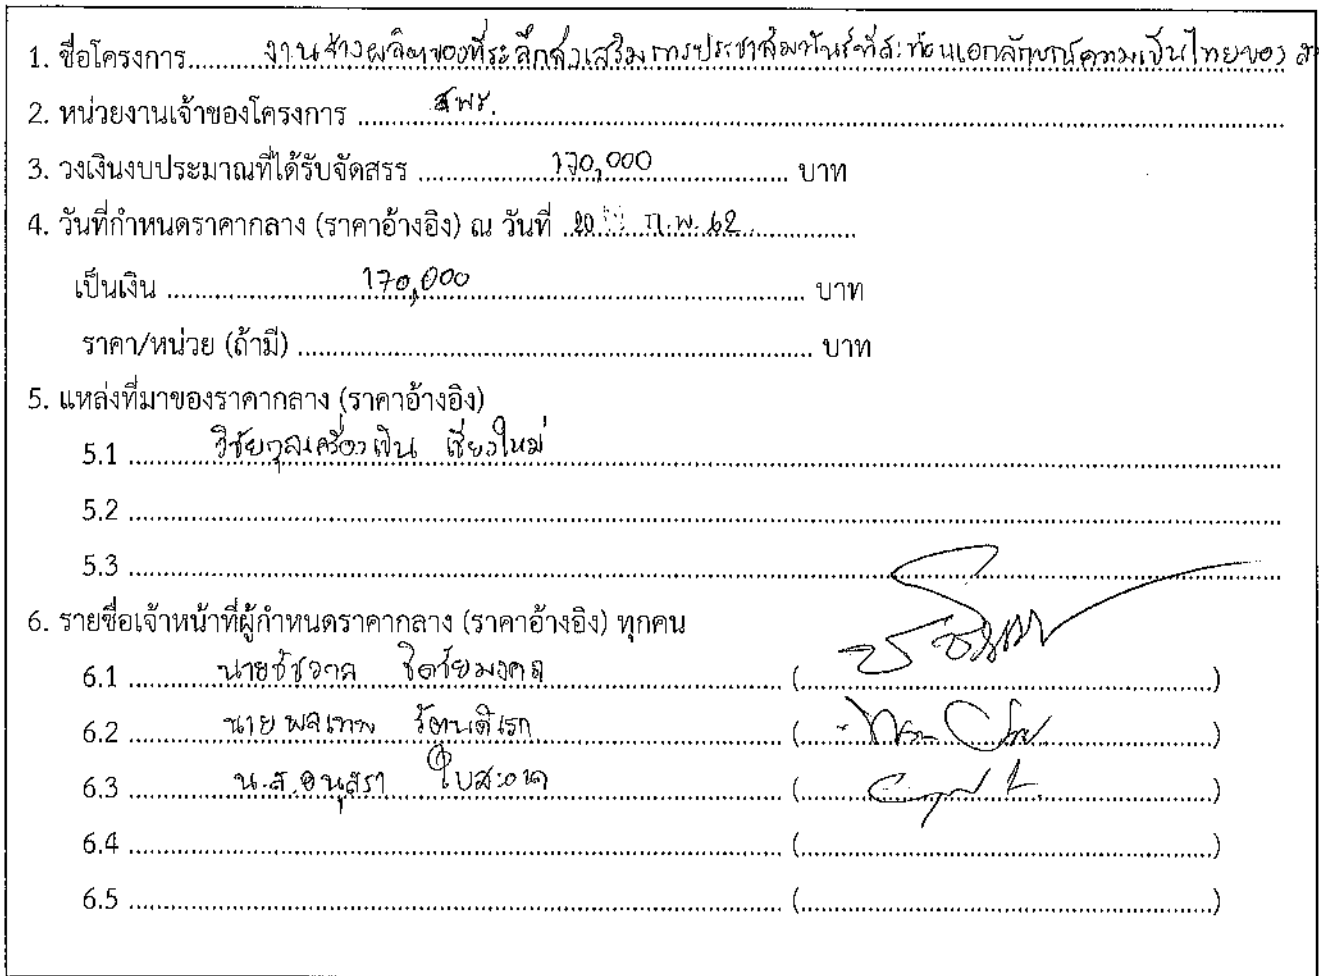 1. ชื่อโครงการ..........งานจ้างผลิตของที่ระลึกส่งเสริมการประชาสัมพันธ์ที่สะท้อนเอกลักษณ์ความเป็นไทยของ
2. หน่วยงานเจ้าของโครงการ ..........สพร...........
3. วงเงินงบประมาณที่ได้รับจัดสรร ..........170,000.......... บาท
4. วันที่กำหนดราคากลาง (ราคาอ้างอิง) ณ วันที่ ..20.... ก.พ. 62..........
เป็นเงิน ..........170,000.......... บาท
ราคา/หน่วย (ถ้ามี) .......... บาท
5. แหล่งที่มาของราคากลาง (ราคาอ้างอิง)
5.1 ..........วิชัยกุลเครื่องเงิน เชียงใหม่..........
5.2 ..........
5.3 ..........
6. รายชื่อเจ้าหน้าที่ผู้กำหนดราคากลาง (ราคาอ้างอิง) ทุกคน
6.1 ..........นายชัชวาล ชิดชัยมงคล.......... (..........)
6.2 ..........นายพลเทพ รัตนดิเรก.......... (..........)
6.3 ..........น.ส.อนุสรา ใบสะอาด.......... (..........)
6.4 .......... (..........)
6.5 .......... (..........)